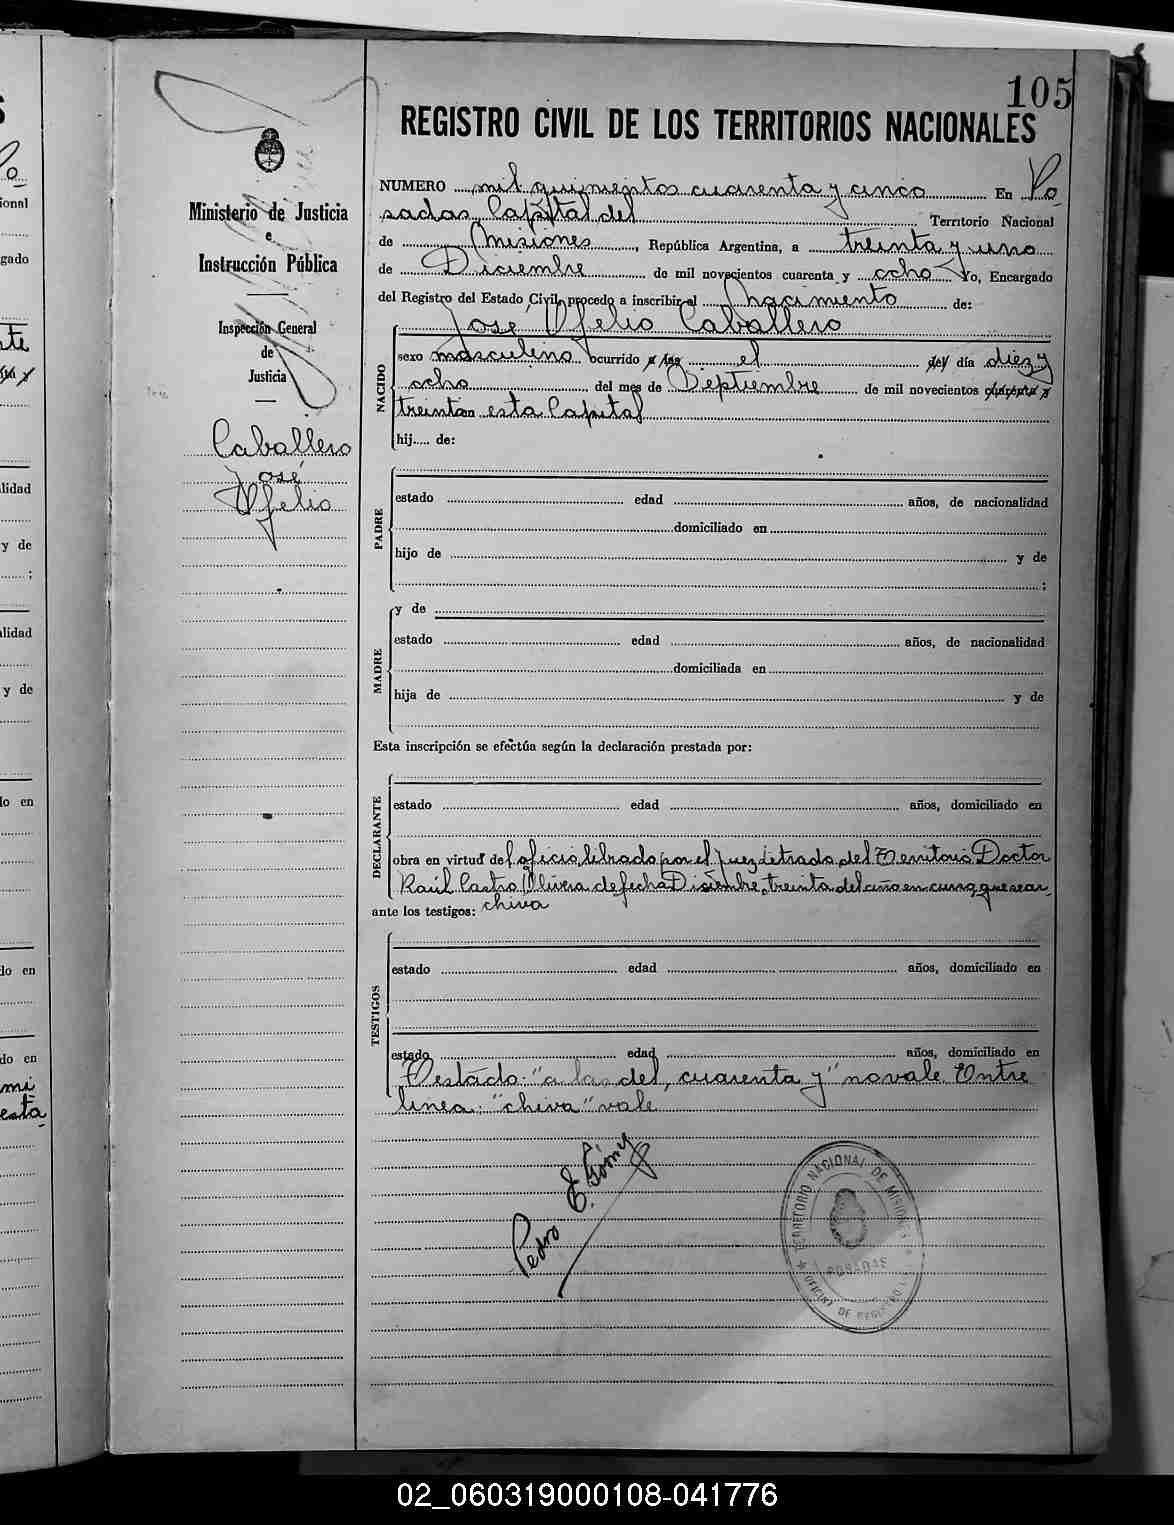 105
REGISTRO CIVIL DE LOS TERRITORIOS NACIONALES
NUMERO mil quinientos cuarenta y cinco En Po
sadas, Capital del Territorio Nacional
de Misiones, República Argentina, a treinta y uno
de Diciembre de mil novecientos cuarenta y ocho Yo, Encargado
del Registro del Estado Civil, procedo a inscribir el nacimiento de:
José Ofelio Caballero
NACIDO
sexo masculino ocurrido a las el del día diez y
ocho del mes de Septiembre de mil novecientos cuarenta y
treinta en esta Capital
hij..... de:
PADRE
estado edad años, de nacionalidad
domiciliado en
hijo de y de
;
MADRE
y de
estado edad años, de nacionalidad
domiciliada en
hija de y de
Esta inscripción se efectúa según la declaración prestada por:
DECLARANTE
estado edad años, domiciliado en
obra en virtud del oficio librado por el Juez Letrado del Territorio Doctor
Raúl Castro Olivera de fecha Diciembre, treinta del año en curso, que se ar
chiva
ante los testigos:
TESTIGOS
estado edad años, domiciliado en
estado edad años, domiciliado en
Testado: "a las del, cuarenta y" no vale. Entre
línea: "chiva" vale
Pedro E. Gómez
TERRITORIO NACIONAL DE MISIONES
POSADAS
OFICINA DE REGISTRO
Ministerio de Justicia
e
Instrucción Pública
Inspección General
de
Justicia
Caballero
José
Ofelio
02_060319000108-041776